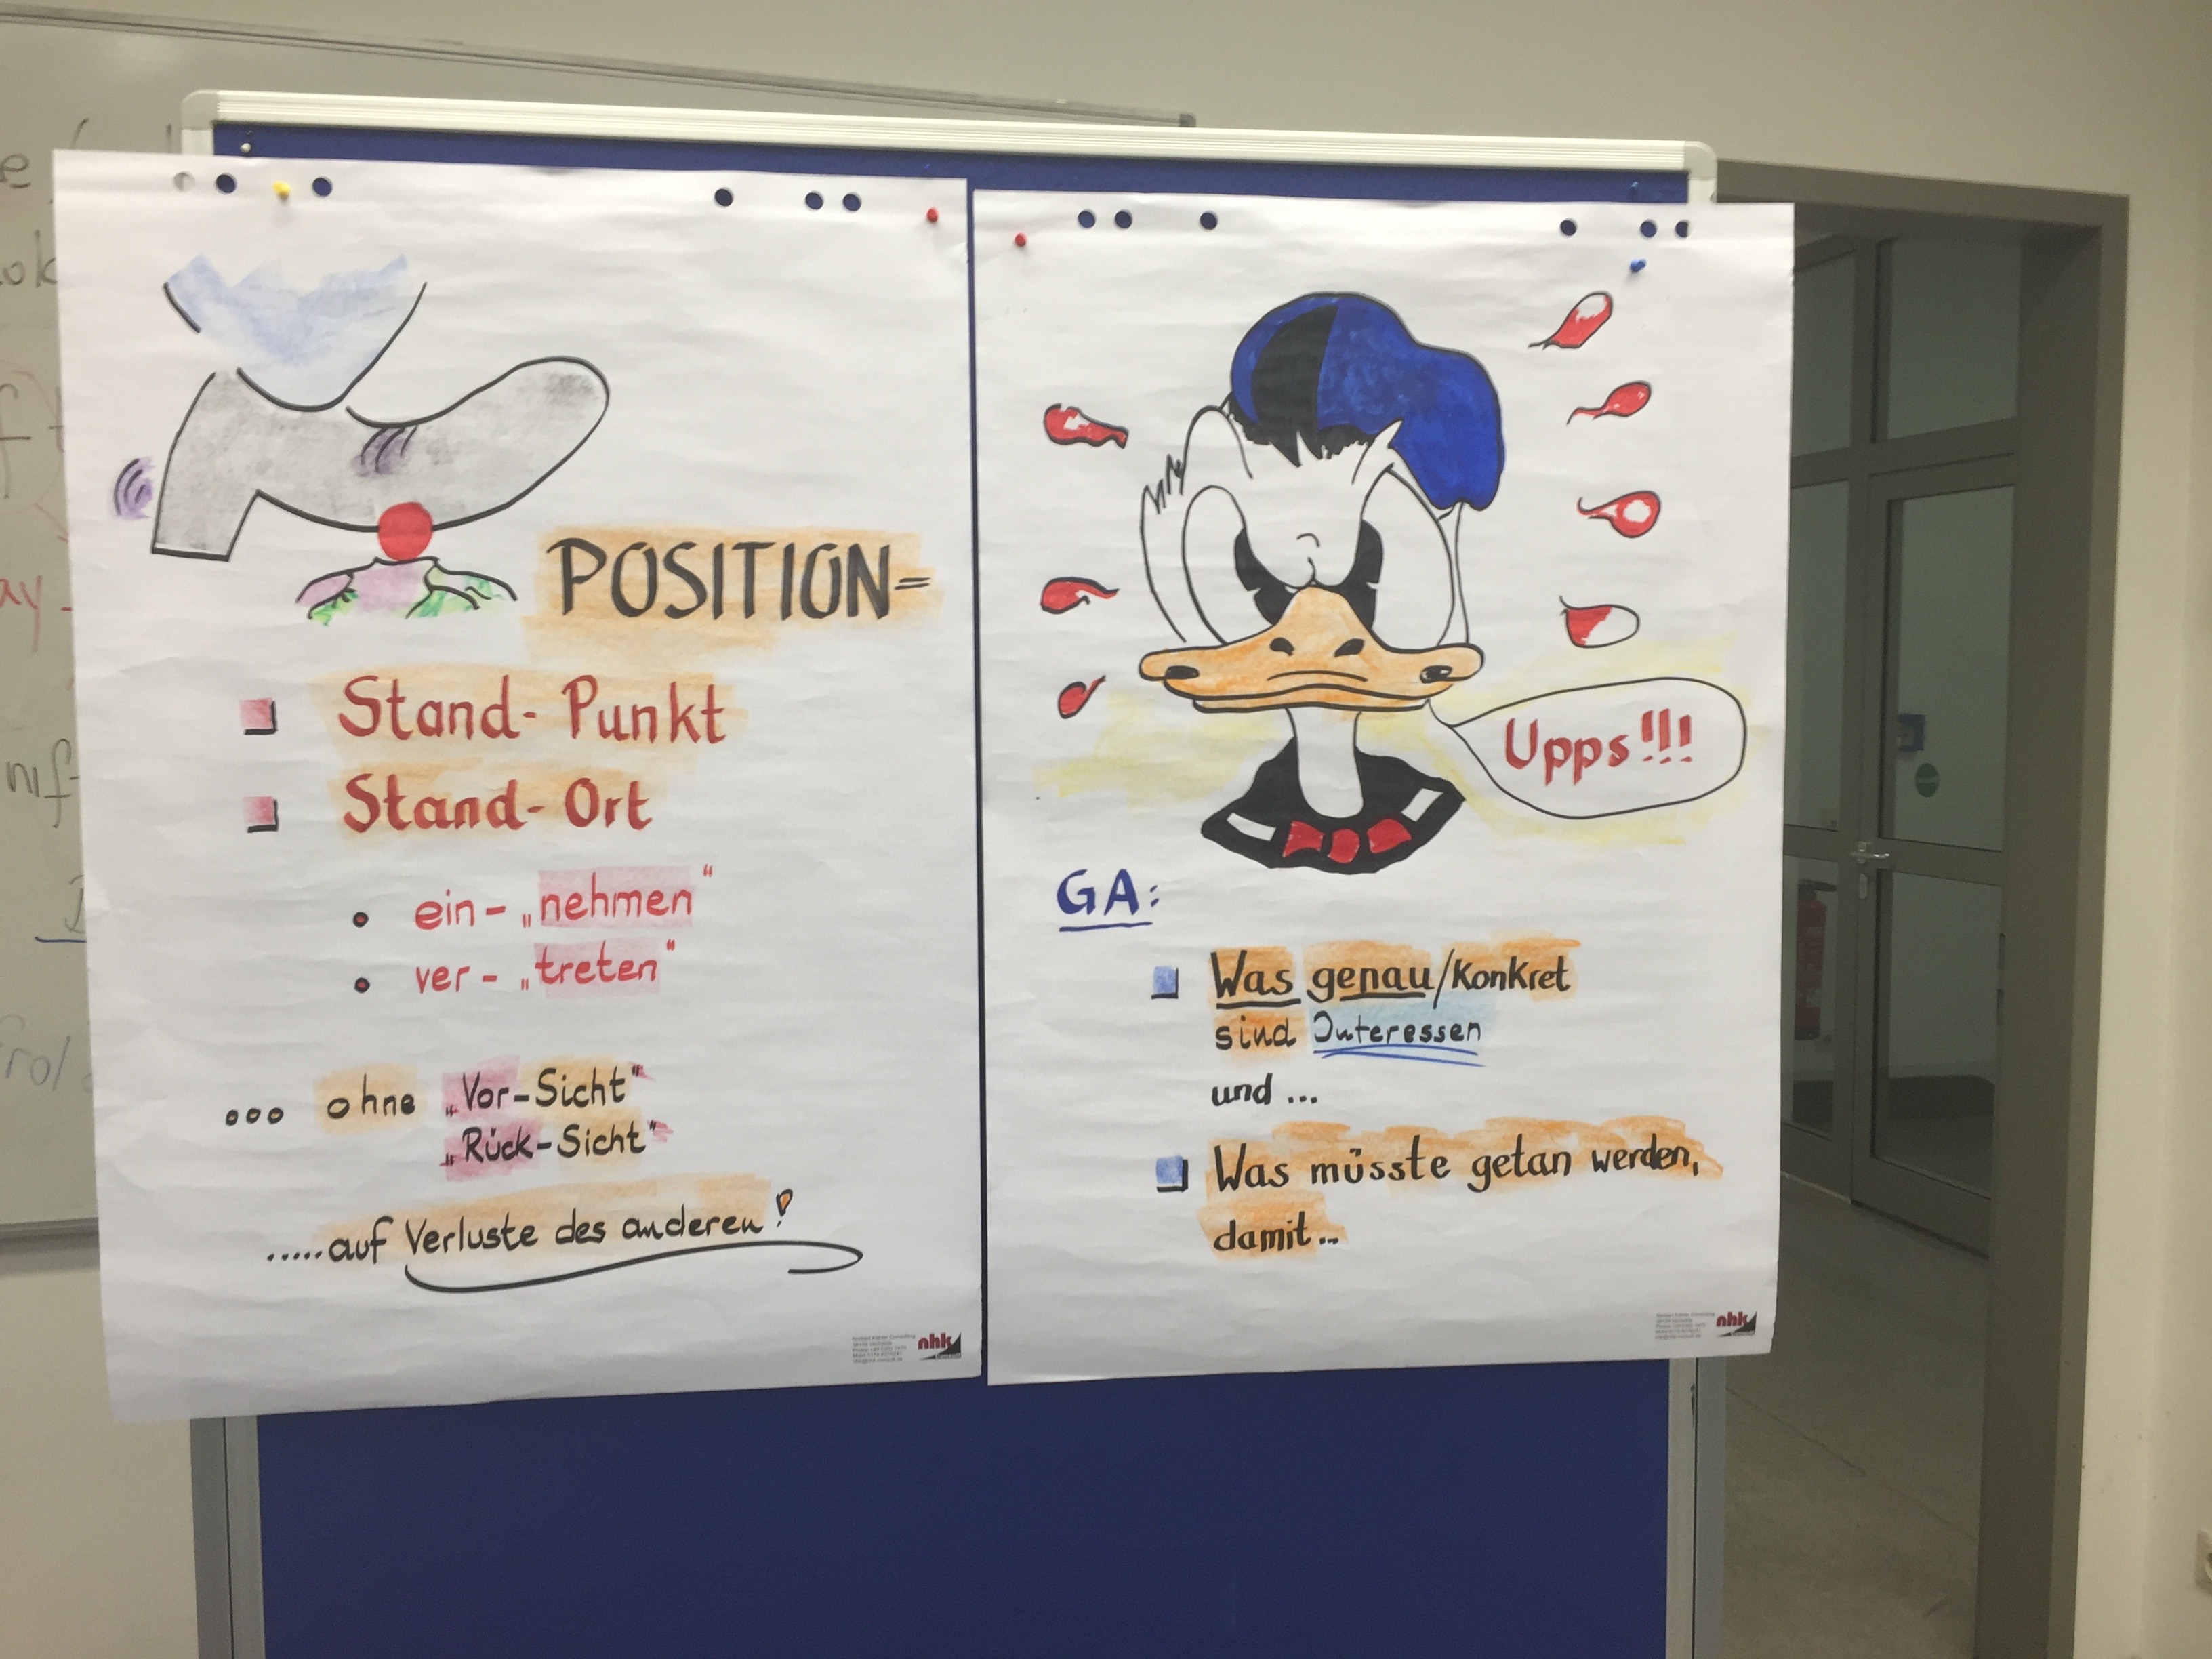 POSITION=
Stand-Punkt
Stand-Ort
ein-„nehmen"
ver-„treten"
... ohne „Vor-Sicht"
„Rück-Sicht"
.....auf Verluste des anderen!
nhk
Upps!!!
GA:
Was genau/Konkret
sind Interessen
und ...
Was müsste getan werden,
damit...
nhk